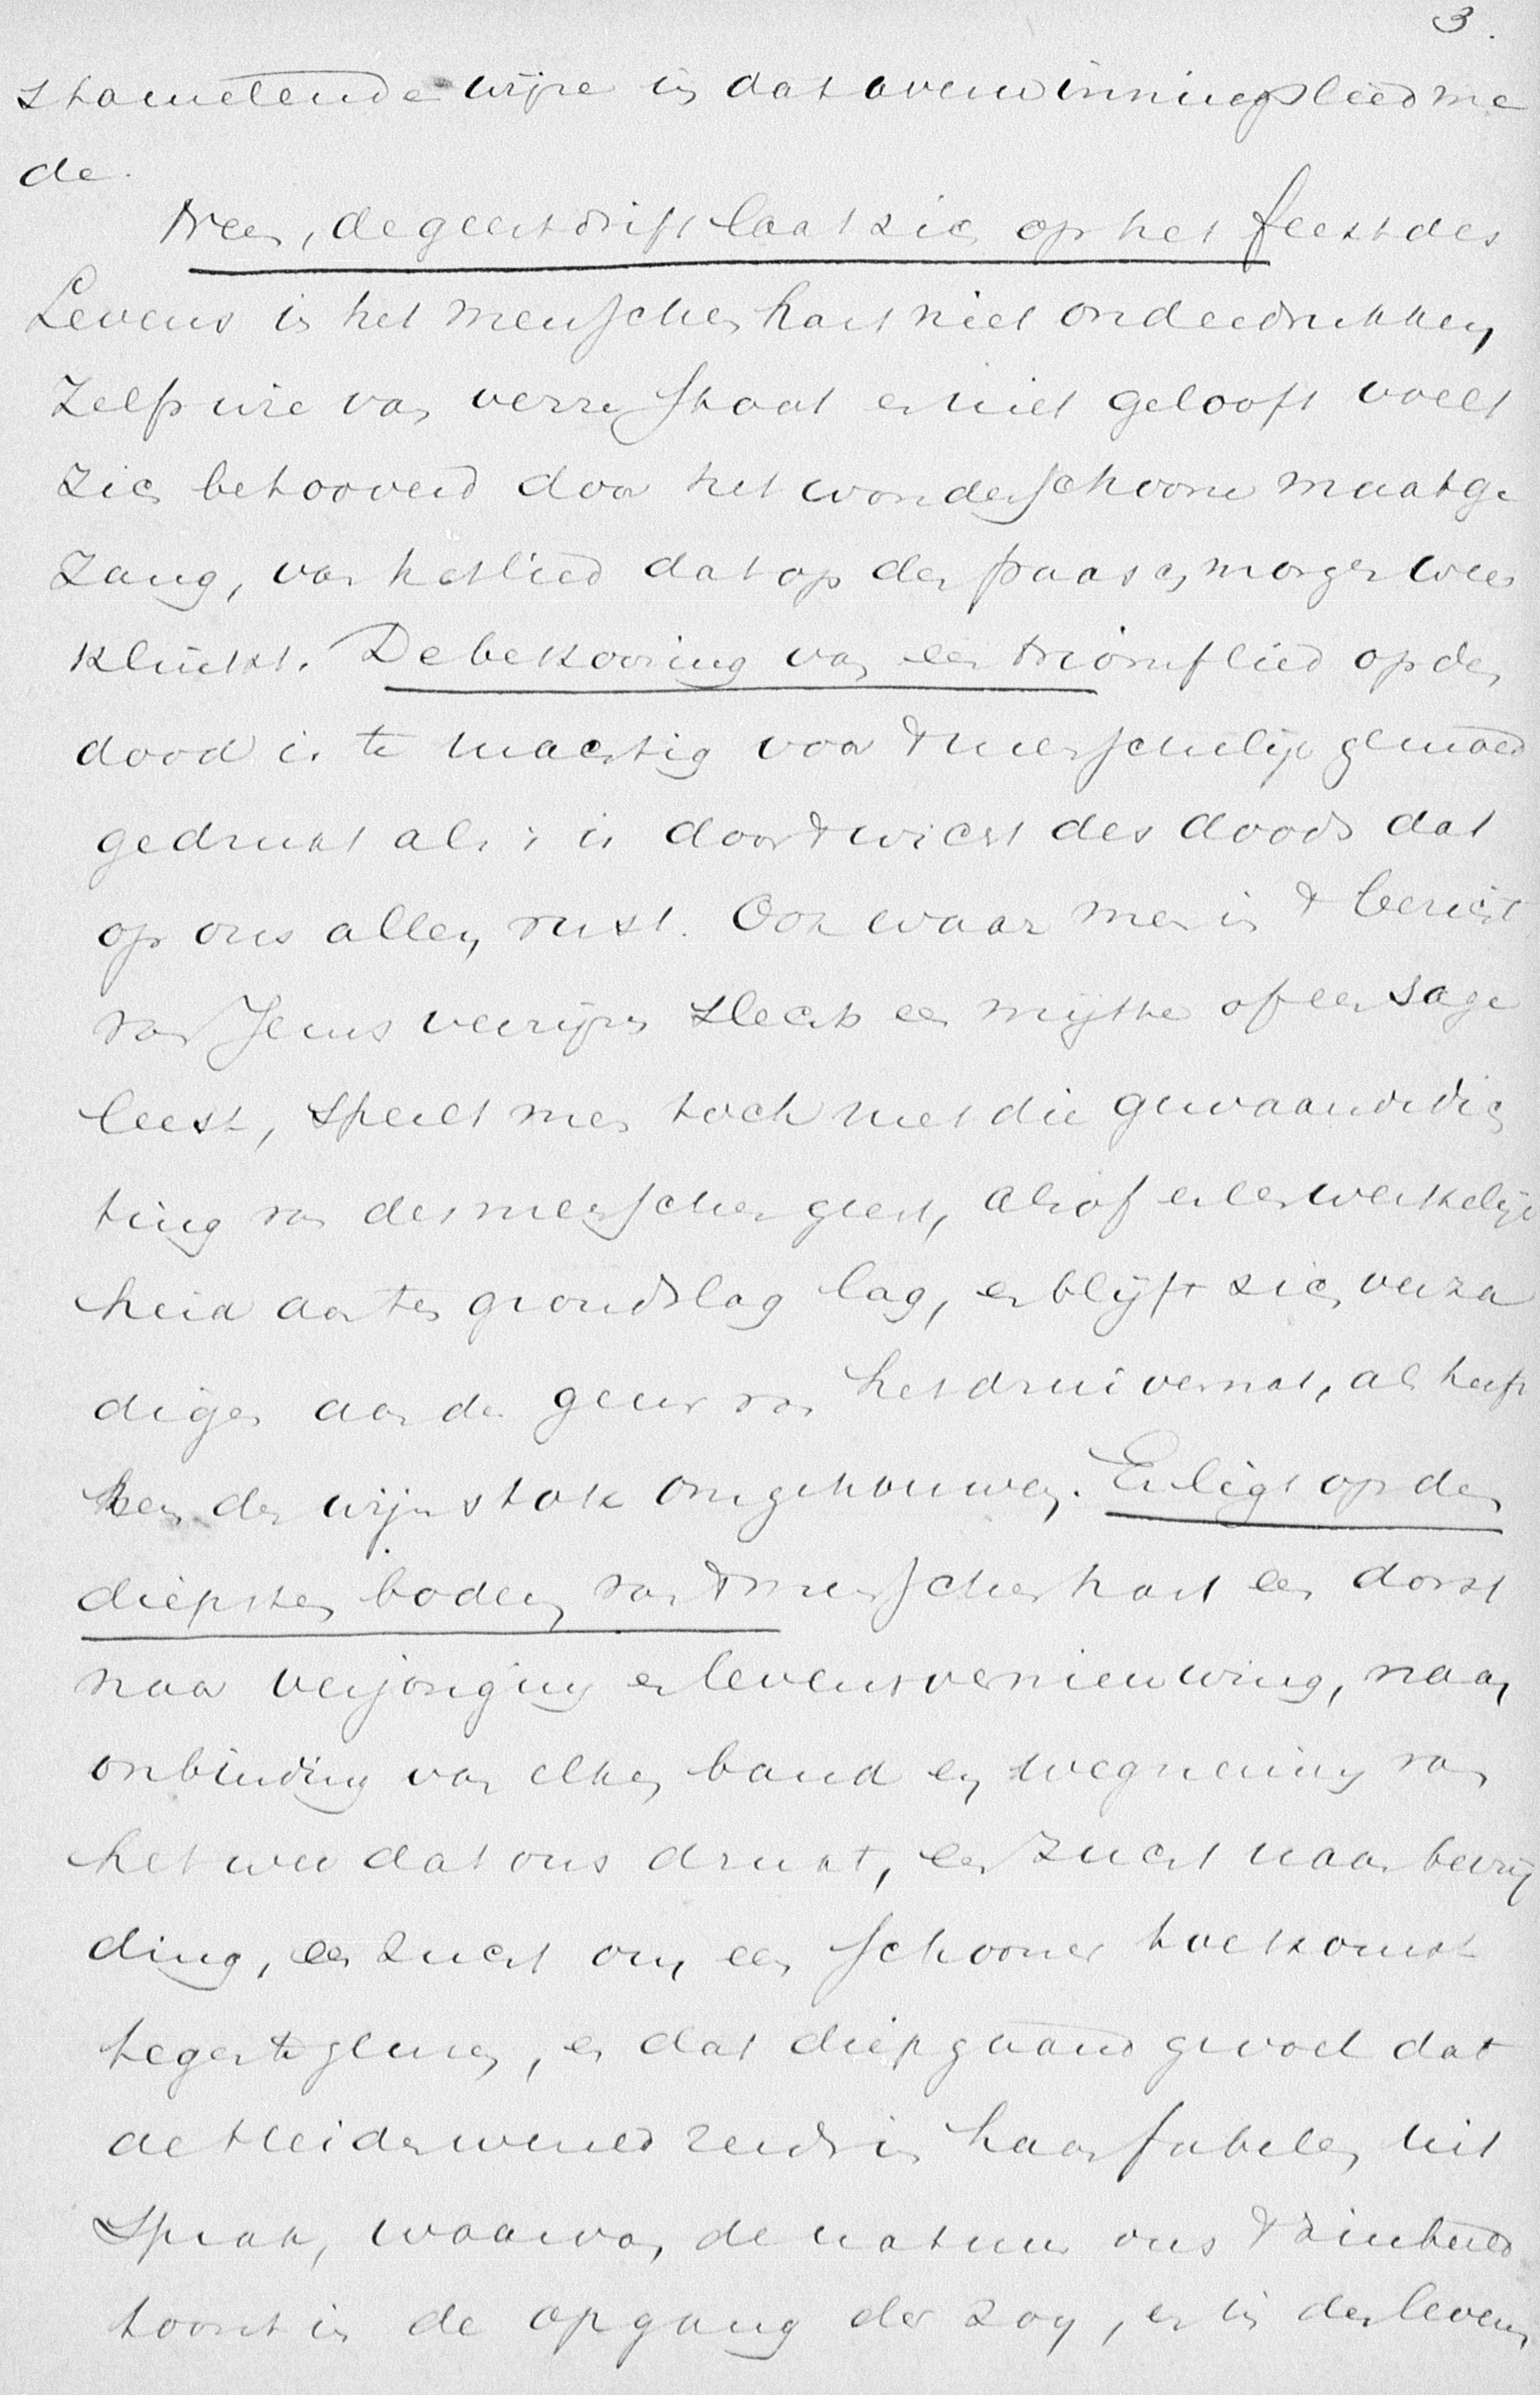 3.
stamelende wijze in dat overwinningslied me
de.
Neen, de geestdrift laat zich op het feest des
Levens in het menschenhart niet onderdrukken,
zelfs wie van verre staat en niet gelooft voelt
zich betooverd door het wonderschoone maatge
zang, van het lied dat op den paaschmorgen weer
klinkt. De bekooring van een triomflied op den
dood is te machtig voor 't menschelijk gemoed
gedrukt als 't is door 't wicht des doods dat
op ons allen rust. Ook waar men in 't bericht
van Jezus verrijzen slechts een mythe of een sage
leest, speelt men toch met die gewaandich
ting van des menschen geest, alsof er een werkelijk
heid aan ten grondslag lag, en blijft zich verza
digen aan de geur van het druivennat, al heeft
men den wijnstok omgehouwen. Er ligt op den
diepsten bodem van 't menschenhart een dorst
naar verjonging en levensvernieuwing, naar
ontbinding van elken band en wegneming van
het wee dat ons drukt, een zucht naar bevrij
ding, een zucht om een schooner toekomst
tegen te gluren, en dat diepgaand gevoel dat
de Heidenwereld reeds in haar fabelen uit
sprak, waarvan de natuur ons 't zinbeeld
toont in de opgang der zon, en in der leven